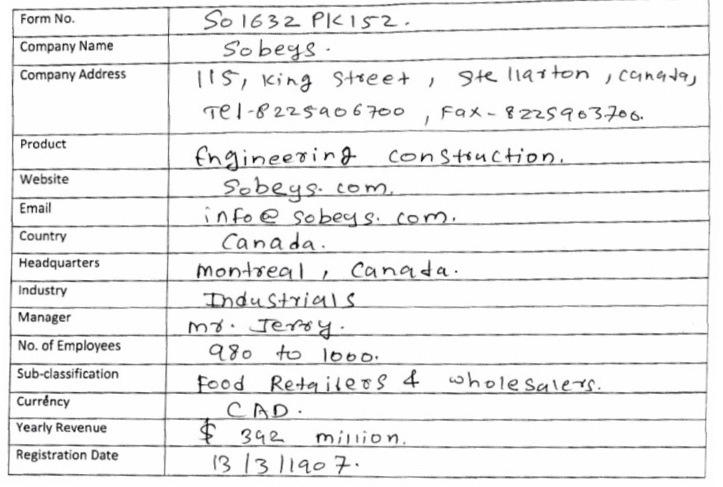 Form No. So1632 PK152.
Company Name Sobeys.
Company Address 115, King Street, Stellarton, Canada,
Tel-8225906700, Fax-8225903706.
Product Engineering construction.
Website Sobeys.com.
Email info@sobeys.com.
Country Canada.
Headquarters montreal, Canada.
Industry Industrials
Manager mr. Jerry.
No. of Employees 980 to 1000.
Sub-classification Food Retailers & wholesalers.
Currency CAD.
Yearly Revenue $ 392 million.
Registration Date 13/3/1907.